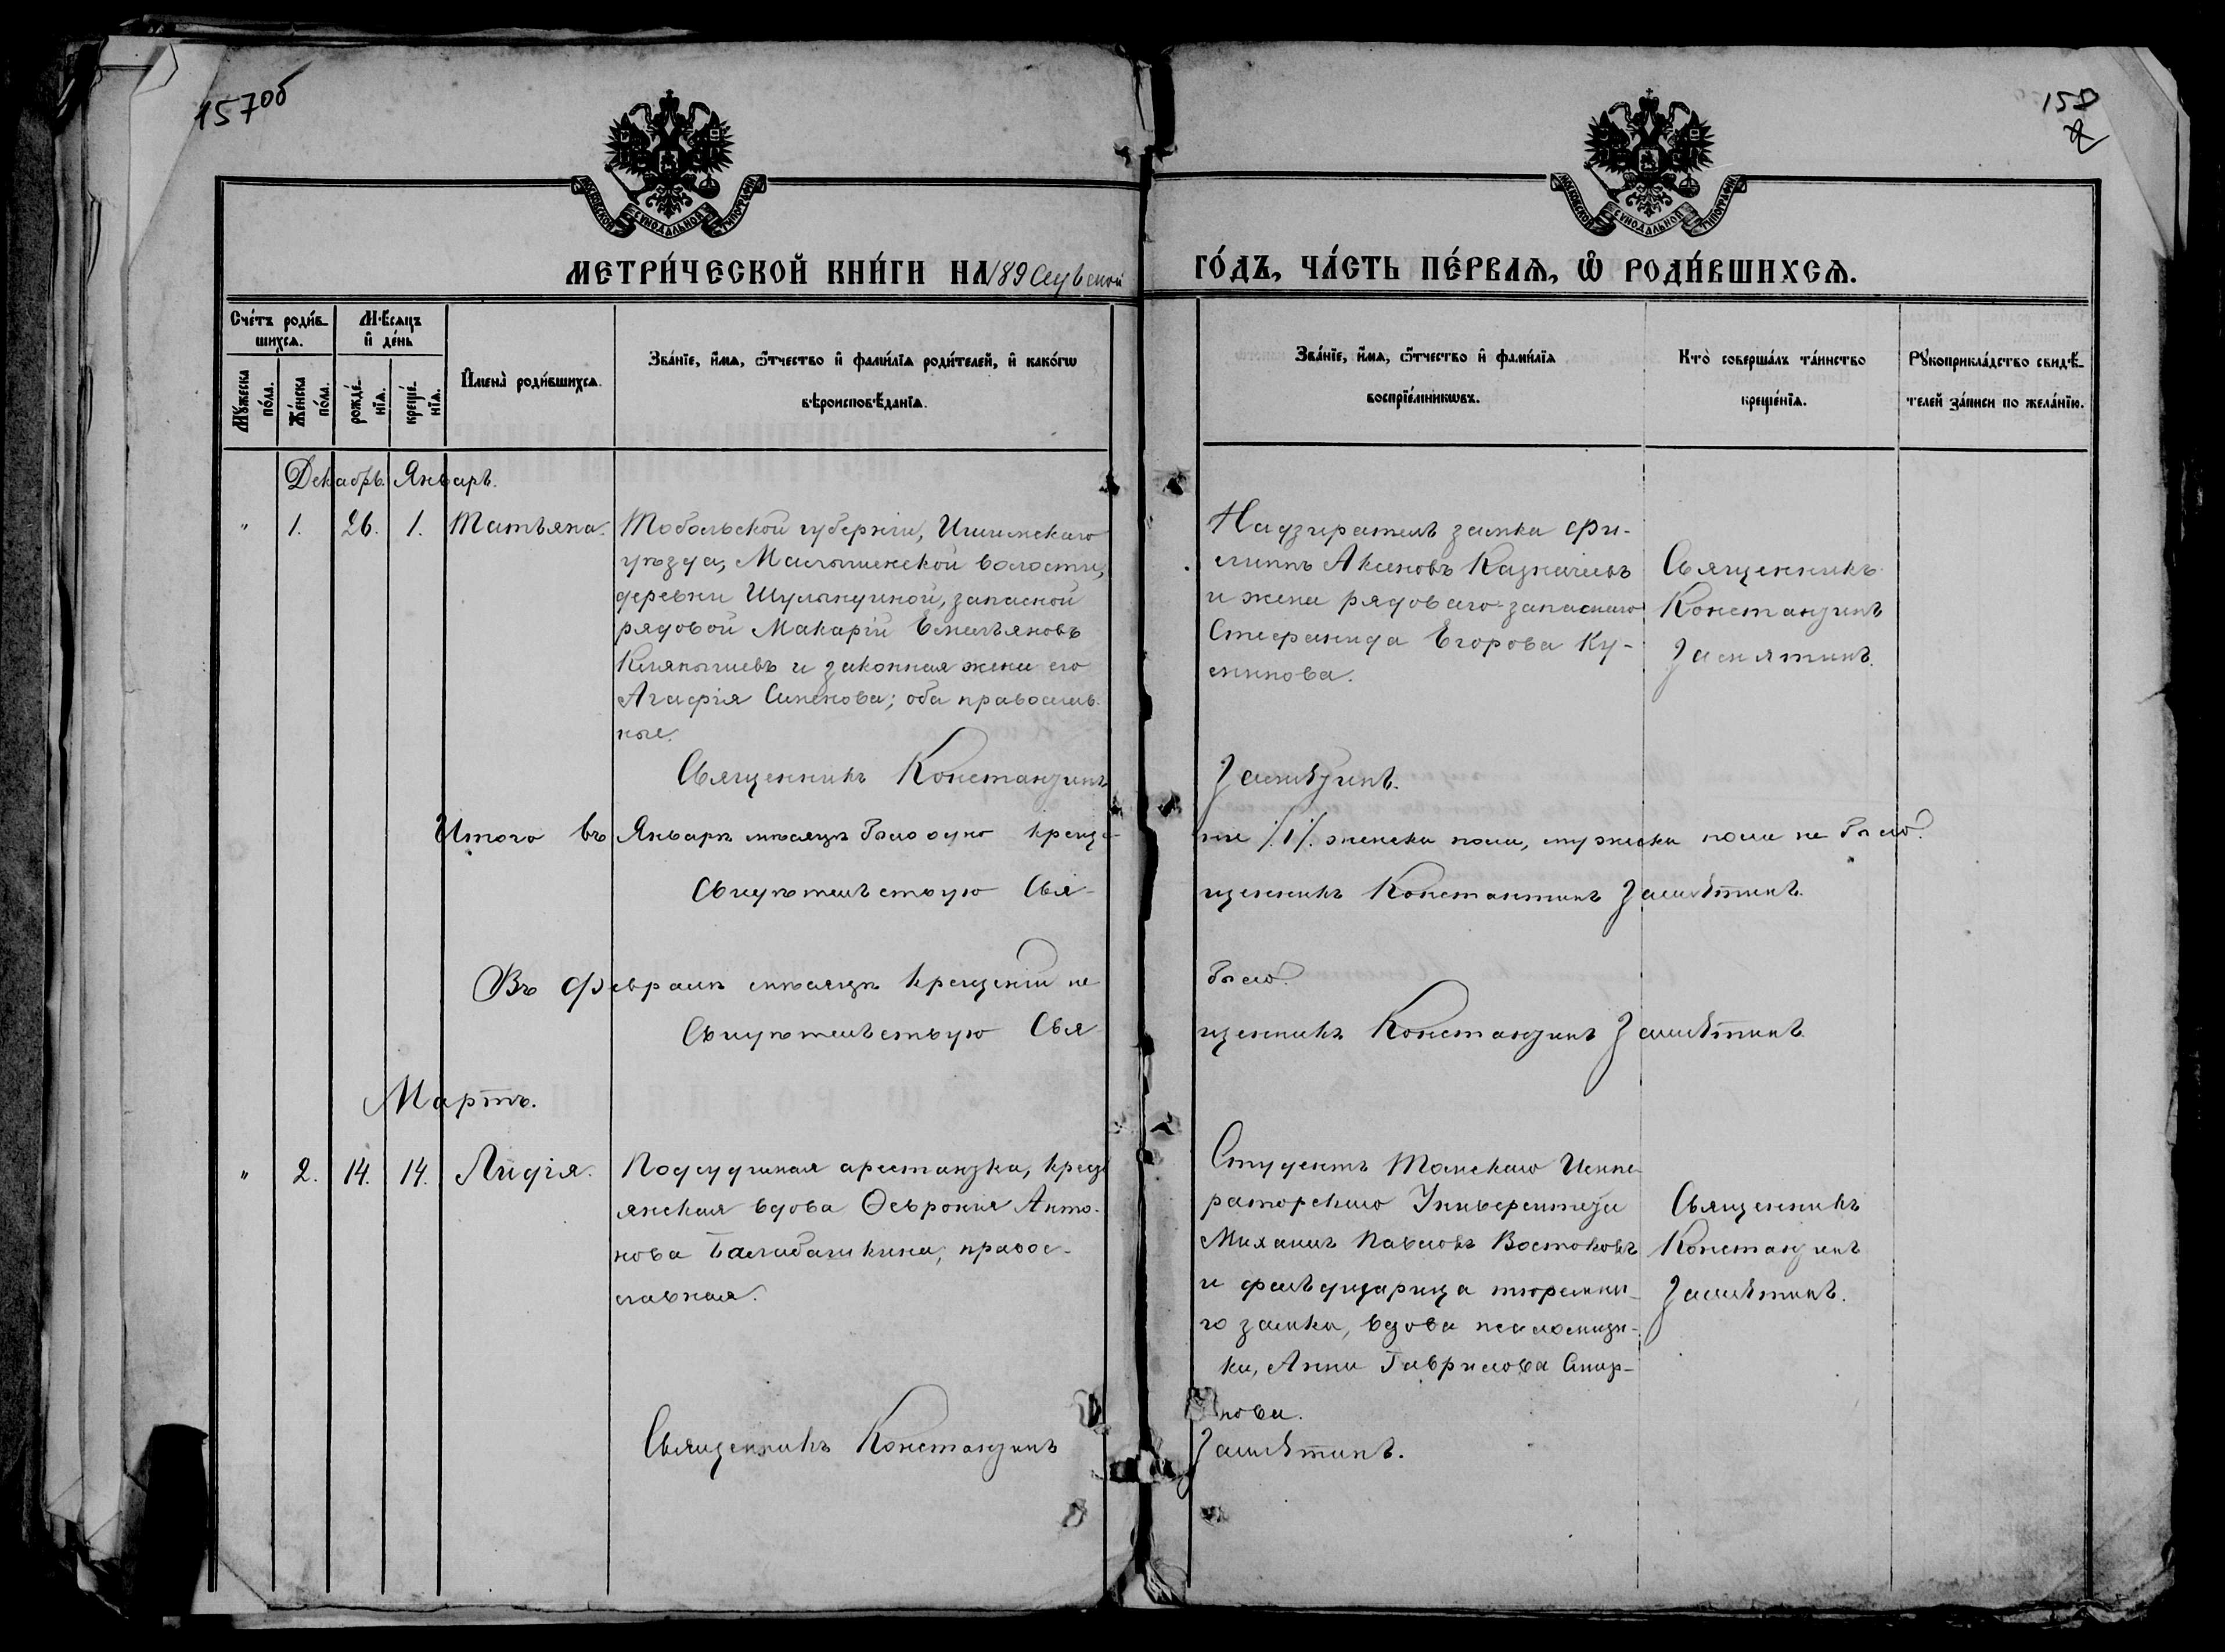 157об
158
МОСКОВСКОЙ СѴНОДАЛЬНОЙ ТИПОГРАФІИ
МОСКОВСКОЙ СѴНОДАЛЬНОЙ ТИПОГРАФІИ
МЕТРИ́ЧЕСКОЙ КНИ́ГИ НА 189
ГО́ДЪ, ЧА́СТЬ ПЕ́РВАѦ, Ѽ РОДИ́ВШИХСѦ.
Сче́тъ роди́в-
шихсѧ.
Мꙋжеска
по́ла.
Же́нска
по́ла.
Мѣсѧцъ
и҆ де́нь
рожде́-
нїѧ.
креще́-
нїѧ.
И҆мена̀ роди́вшихсѧ.
Зва́нїе, и҆́мѧ, ѻ҆́тчество и҆ фами́лїѧ роди́телей, и҆ како́гѡ
вѣроисповѣданїѧ.
Зва́нїе, и҆́мѧ, ѻ҆́тчество и҆ фами́лїѧ
воспрїе́мникѡвъ.
Кто̀ соверша́лъ та́инство
креще́нїѧ.
Рꙋкоприкла́дство свидѣ-
телей за́писи по жела́нїю.
Декабрь. Январь.
" 1. 26. 1. Татьяна.
Тобольской губерніи, Ишимскаго
уѣзда, Малышенской волости,
деревни Шулындиной, запасной
рядовой Макарій Емельяновъ
и законная жена его
Агафія Симонова; оба православ-
ные.
Надзиратель замка Фи-
липпъ Аксеновъ Казначеевъ
и жена рядоваго запаснаго
Стефанида Егорова Ку-
линова.
Священникъ
Константинъ
Замятинъ.
Священникъ Константинъ Замятинъ.
Итого въ Январѣ мѣсяцѣ было одно креще-
ніе /.1/. женска пола, мужска пола не было.
Свидѣтельствую Свя-
щенникъ Константинъ Замятинъ.
Въ Февралѣ мѣсяцѣ крещеній не
было.
Свидѣтельствую Свя
щенникъ Константинъ Замятинъ.
Мартъ.
" 2. 14. 14. Лидія.
Подсудимая арестантка, крест
янская вдова Ѳеврокія Анто-
нова Балабашкина, правос-
лавная.
Студентъ Томскаго Импе-
раторскаго Университета
Михаилъ Павловъ Востоковъ
и фельдшерица тюремна-
го замка, вдова псаломщи-
ка, Анна Гаврилова Смир-
нова.
Священникъ
Константинъ
Замятинъ.
Священникъ Константинъ
Замятинъ.